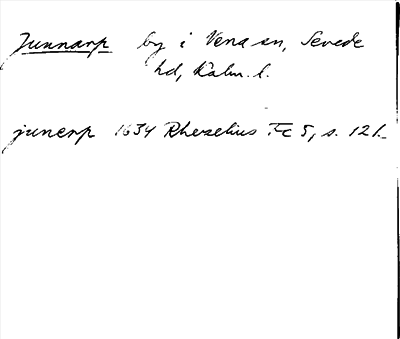 Junnarp by i Vena sn, Sevede
hd, Kalm. l.
junerp 1634 Rhezelius Fc 5, s. 121.